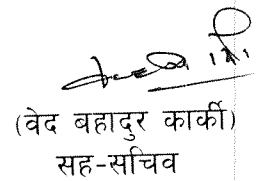 (वेद बहादुर कार्की)
सह-सचिव